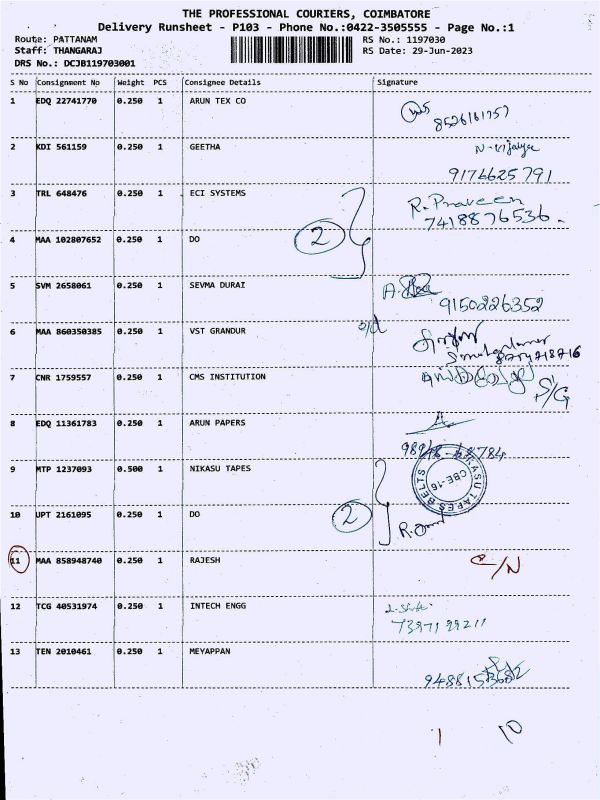 THE PROFESSIONAL COURIERS, COIMBATORE
Delivery Runsheet - P103 - Phone No.:0422-3505555 - Page No.:1
Route: PATTANAM RS No.: 1197030
Staff: THANGARAJ RS Date: 29-Jun-2023
DRS No.: DCJB119703001
S No Consignment No Weight PCS Consignee Details Signature
1 EDQ 22741770 0.250 1 ARUN TEX CO
8526161757
2 KDI 561159 0.250 1 GEETHA N-Vijaya
9176625791
3 TRL 648476 0.250 1 ECI SYSTEMS R. Praveen
7418876536
4 MAA 102807652 0.250 1 DO 2
5 SVM 2658061 0.250 1 SEVMA DURAI
9150226352
6 MAA 860350385 0.250 1 VST GRANDUR o/d
7 CNR 1759557 0.250 1 CMS INSTITUTION
S/G
8 EDQ 11361783 0.250 1 ARUN PAPERS
9 MTP 1237093 0.500 1 NIKASU TAPES
CBE-16
TAPES BELTS
10 UPT 2161095 0.250 1 DO 2
11 MAA 858948740 0.250 1 RAJESH C/N
12 TCG 40531974 0.250 1 INTECH ENGG
7397199211
13 TEN 2010461 0.250 1 MEYAPPAN
1 10